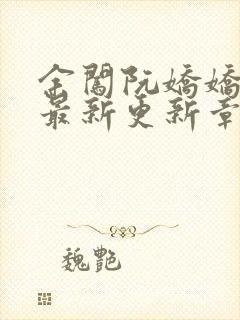 金闕阮嬌嬌
最新更新章
魏艷